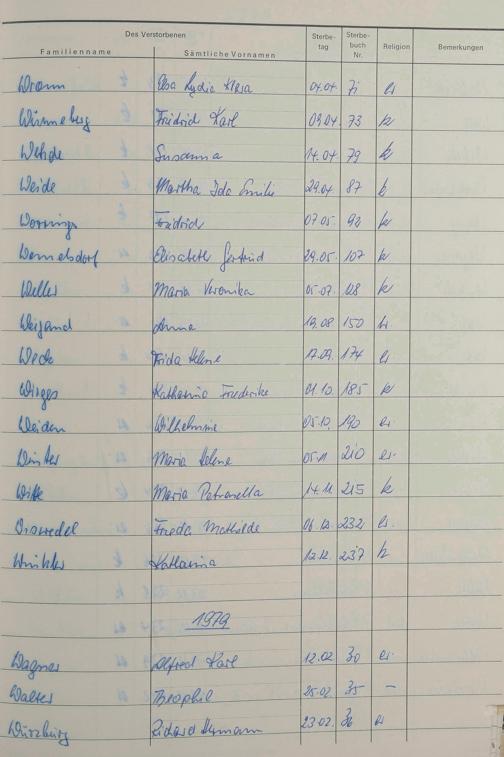 Des Verstorbenen
Familienname Sämtliche Vornamen Sterbe-tag Sterbe-buch Nr. Religion Bemerkungen
Elsa Lydia 04.04. 71 ev
Würmeberg Fridrich Karl 09.04. 73 k
Wehde Susanna 14.04 79 k
Weide Martha Ida Emilie 29.04 87 k
Fridrich 07.05. 92 k
Elisabeth Gertrud 29.05. 107 k
Weller Maria Veronika 05.07. k
Weigand Anna 19.08 150
Weck Frida Helene 17.09. 174 ev
Wirges Katharina Friederike 01.10. 185 k
Weiden Wilhelmine 05.10. 190 ev
Winter Maria Helene 05.11 210 ev.
Witte Maria Petronella 14.11 215 k
Frieda Mathilde 06.12. 232 ev.
Winkler Katharina 12.12. 237 k
1979
Wagner Alfred Karl 12.02 30 ev.
Walter Theophil 25.02. 35 –
Würzburg Richard Hermann 23.02. 36 ev